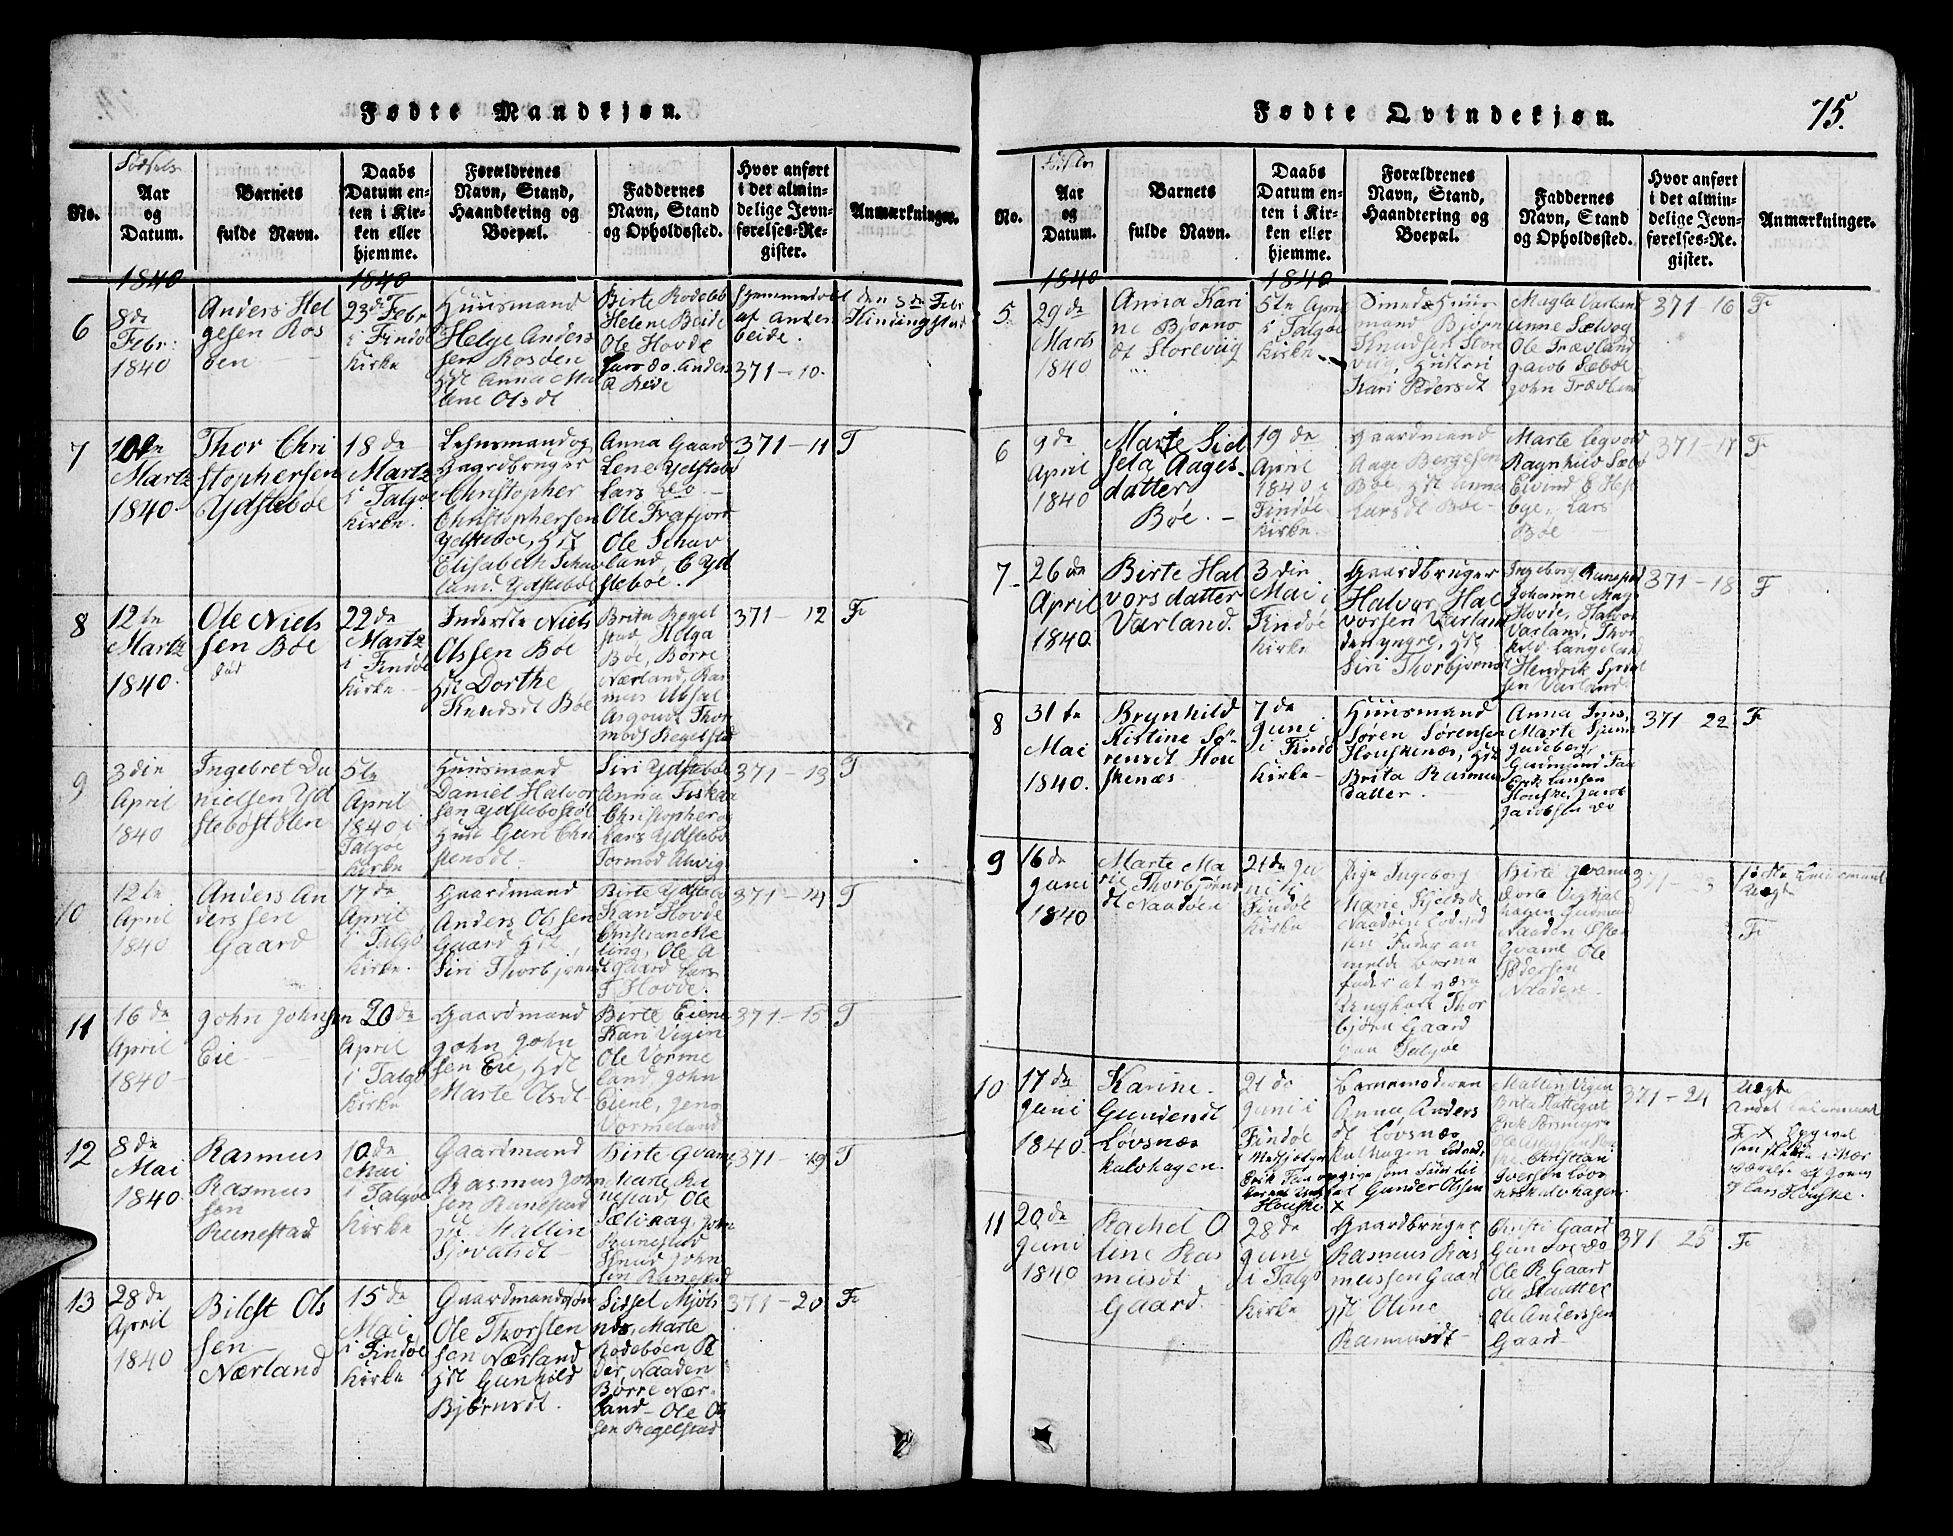 Fødte Mandkjøn.
Fødte Qvindekjøn.
75.
No.
Aar
og
Datum.
Barnets
fulde Navn.
Daabs
Datum en-
ten i Kir-
ken eller
hjemme.
Forældrenes
Navn, Stand,
Haandtering og
Boepæl.
Faddernes
Navn, Stand
og Opholdssted.
Hvor anført
i det almin-
delige Jevn-
førelses-Re-
gister.
Anmærkninger.
1840
1840
6
8de
Febr:
1840
Anders Hel
gesen Ros
den
23de Febr
i Findøe
Kirke
Huusmand
Helge Anders
sen Rosden
Anna Ma
lene Olsdt
Birte Rodebø
Helene Beide
Ole Hovde
Lars do. Anders
Beide
Hjemmedøbt
af Anders
beide.
371-10.
den 8de Febr
7
10de
Martz
1840
Thor Chri
stophersen
Ydsteboe
18de
Martz
i Talgøe
Kirke.
Lehnsmand og
Gaardbruger
Christopher
Christophersen
Ydsteboe, Hst
Elisabeth Schau
land Ydsteboe
Anna Gaard
Lene Ydstebø
Lars do
Ole
Ole Schau
land, C Yd
steboe.
371-11
T
8
12te
Martz
1840.
Ole Niels
sen Bøe
22de
Martz
i Findøe
Kirke
Inderste Niels
Olssen Bøe
Hst Dorthe
Knudsdt Bøe
Brita Regel
stad, Helga
Bøe, Børre
Nærland, Ras
mus
Asgoudt Thor
mods Regelstad
371-12
F
9
3die
April
1840
Ingebret Da
nielsen Yd
stebøstølen
5te
April
1840 i
Talgøe
Kirke
Huusmand
Daniel Halvor
sen Ydstebøstøl
Hust Guri Chri
stensdt.
Siri Ydstebøe
Anna Fiskaa
Christopher o
Lars Ydstebø
Tormod
371-13
T
10
12te
April
1840
Anders An
derssen
Gaard
17de
April
i Talgø
Kirke.
Gaardmand
Anders Olssen
Gaard Hst
Siri Thorbjørnsdt
Birte Ydstebø
Kari Hovde
Christian Me
ling, Ole A
Gaard Lars
T Hovde.
371-14
T
11
16de
April
1840
John Johnsen
Eie
20de
April
i Talgø
Kirke
Gaardmand
John John
sen Eie, Hst
Marte Olsdt
Birte Eiene
Kari Vigin
Ole Vorme
land, John
Eiene, Jens
Vormeland
371-15
T
12
8de
Mai
1840
Rasmus
Rasmus
sen
Runestad
10de
Mai
i Talgøe
Kirke
Gaardmand
Rasmus John
sen Runestad
Hst Mallin
Sjovatsdt
Birte Gvame
Marte Ru
nestad Ole
John
Runestad
Knud John
sen Runestad
371-19
T
13
28de
April
1840
Bilest Ols
sen
Nærland
15de
Mai
i Findøe
Kirke
Gaardmandssøn
Ole Thorsten
sen Nærland
Hst Gunhild
Bjørnsdt.
Sidsel Mjøls
næs, Marte
Rodebøen P
der Naaden
Børre Nær
land - Ole Ol
sen Regelstad
371-20
F
No.
Aar
og
Datum.
Barnets
fulde Navn.
Daabs
Datum en-
ten i Kir-
ken eller
hjemme.
Forældrenes
Navn, Stand,
Haandtering og
Boepæl.
Faddernes
Navn, Stand
og Opholdssted.
Hvor anført
i det almin-
delige Jevn-
førelses-Re-
gister.
Anmærkninger.
1840
1840
5
29de
Marts
1840
Anna Kari
ne Bjørns
dt Storeviig
5te April
i Talgøe
Kirke
mand Bjørn
Knudsen Store
viig, Hustru
Kari Pedersdt
Magla Varland
Ole Trævland
Jacob Sæbøe
John Trædland
371-16
F
6
9de
April
1840
Marte Sid
sela Aages-
datter
Bøe.
19de
April
1840 i
Findøe
Kirke.
Gaardmand
Aage Bergesen
Bøe, Hst Anna
Larsdt Bøe
Marte
Ragnhild Sæbø
Eivind E Hes
bye, Lars
Bøe
371-17
F
7
26de
April
1840.
Birte Hal
vorsdatter
Varland.
3die
Mai i
Findøe
Kirke
Gaardbruger
Halvor Hal
vorsen Varland
den yngre, Hst
Siri Thorbjørnsdt
Ingeborg Runestad
Johanne
Hovde, Halvor
Varland, Thor
kild Langeland
Hendrik
sen Varland.
371-18
F
8
31te
Mai
1840.
Brynhild
Kistine Sø-
rensdt Hou
skenæs.
7de
Juni
i Findø
Kirke
Huusmand
Søren Sørensen
Houskenæs, Hst
Brita Rasmus
datter.
Anna
Marte
Gudeborg
Gudmund
Erik Larsen
Houske, Jacob
Jacobsen do
371 22
F
9
16de
Juni
1840
Marte Ma
rie Thorbjørns
dt Naadøen
21de Ju
ni i
Findøe
Kirke
Pige Ingeborg
Marie
Naadøen
fader at være
Ungkarl Thor
bjørn Gaard
paa Talgøe
Birte Gvame
Naaden
Gvame Ole
Pedersen
Naaden.
371-23
Uægt
F
10
17de
Juni
1840.
Karine
Gundersdt
Løvsnæs
kalvhagen.
21de
Juni i
Findøe
Barnemoderen
Anna Anders
dt Løvsnæs
kalhagen
opgive som Fader til
Gunder Olssen
Mallin Vigen
Brita
Christian
Iversen Løvs
næskalvhagen
371-24
Uægte
11
20de
Juni
1840
Rachel O
line Ras
musdt
Gaard
28de
Juni
i Talgø
Kirke
Gaardbruger
Rasmus Ras
mussen Gaard
Hst Oline
Rasmusdt
Christi Gaard
do
Ole R Gaard
Ole
Ole Anderssen
Gaard
371 25
F